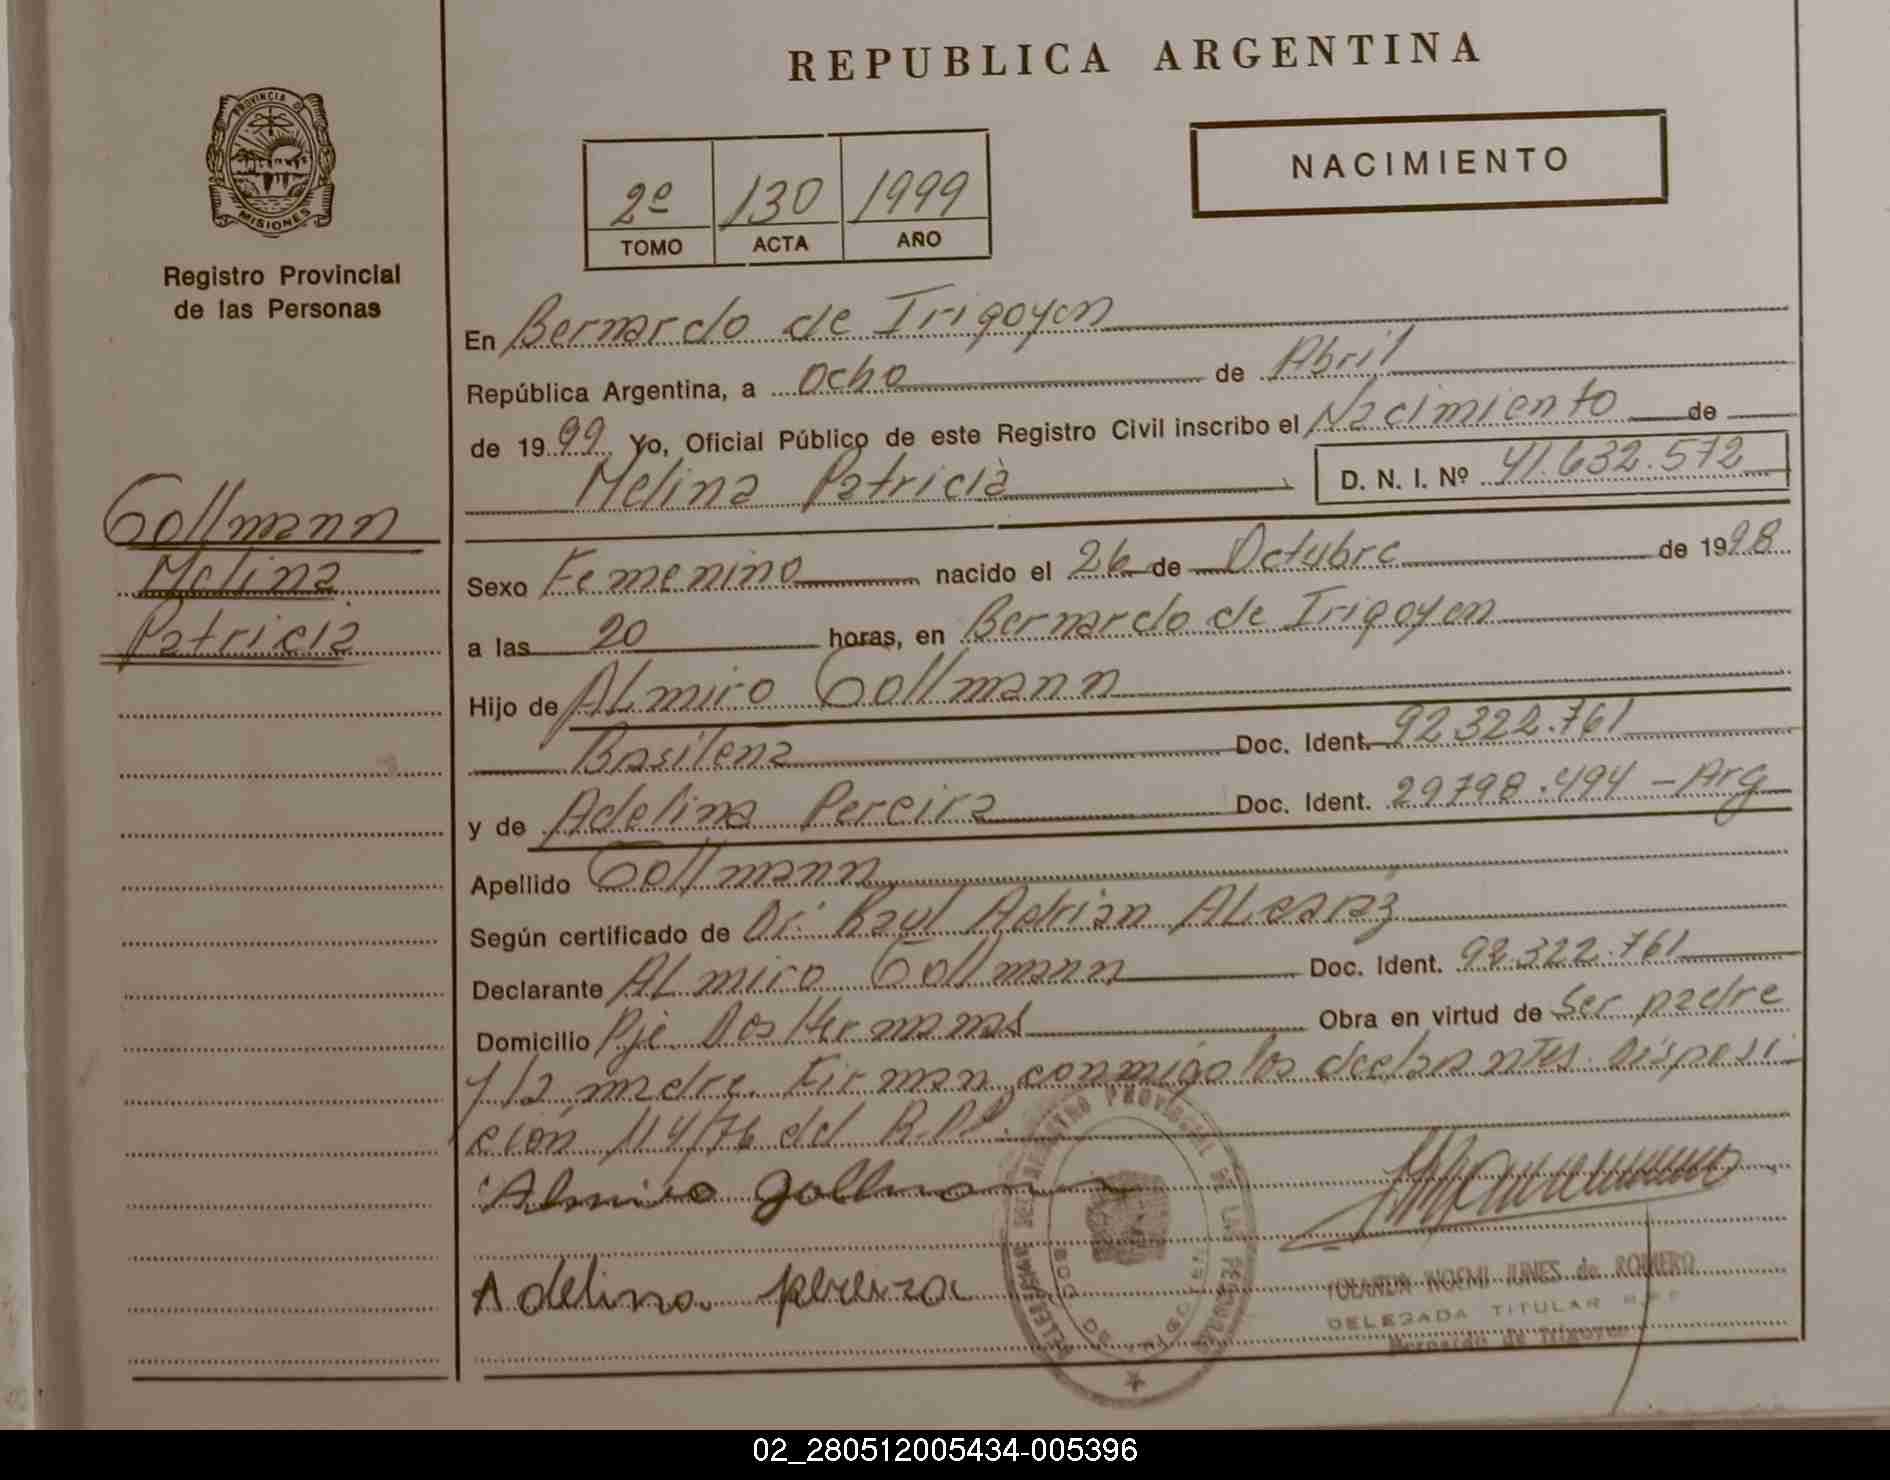 REPUBLICA ARGENTINA
PROVINCIA DE
MISIONES
Registro Provincial
de las Personas
NACIMIENTO
2º 130 1999
TOMO ACTA AÑO
En Bernardo de Irigoyen
República Argentina, a Ocho de Abril
de 1999 Yo, Oficial Público de este Registro Civil inscribo el Nacimiento de
Melina Patricia D. N. I. Nº 41.632.572
Gollmann
Melina
Patricia
Sexo Femenino nacido el 26 de Octubre de 1998
a las 20 horas, en Bernardo de Irigoyen
Hijo de Almiro Gollmann
Brasilena Doc. Ident. 92.322.761
y de Adelina Pereira Doc. Ident. 29798.494 - Arg
Apellido Gollmann
Según certificado de Dr. Raul Adrian Alcaraz
Declarante Almiro Gollmann Doc. Ident. 92.322.761
Domicilio Pje. Dos Hermanas Obra en virtud de Ser padre
y la madre. Firman conmigo los declarantes. Disposi
cion 114/76 del R.P.P.
Almiro Gollmann
Adelina pereira
REGISTRO PROVINCIAL DE LAS PERSONAS
YOLANDA NOEMI JUNES de ROMERO
DELEGADA TITULAR R.P.P.
Bernardo de Irigoyen
02_280512005434-005396